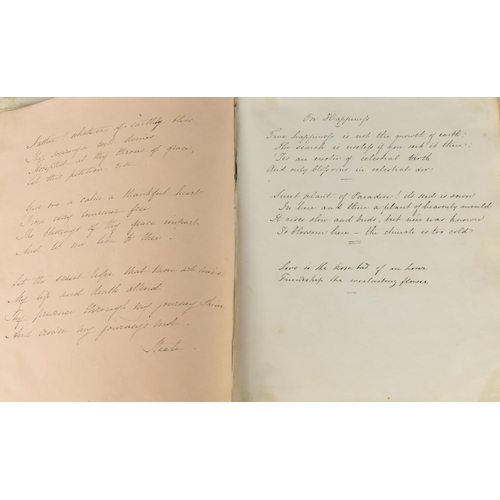 Father! whate'er of earthly bliss
Thy sovereign will denies
Accepted at thy throne of grace,
Let this petition rise
Give me a calm a thankful heart
From every murmur free
The blessings of thy grace impart
And let me live to thee.
Let the sweet hope that thou art mine
My life and death attend
Thy presence through my journey shine
And crown my journeys end.
Steele
On Happiness
True happiness is not the growth of earth:
The search is useless if you seek it there:
'Tis an exotic of celestial birth
And only blossoms in celestial air.
Sweet plant of Paradise! its seed is sown
In here and there a plant of heavenly mould
It rises slow and buds, but ne'er was known
To blossom here — the climate is too cold.
Love is the rose bud of an hour
Friendship the everlasting flower